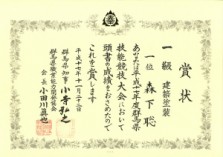 賞状
一級 建築塗装
一位 森下聡
あなたは平成十七年度群馬県
技能競技大会において
頭書の成績をおさめたので
これを賞します
平成十七年十一月二十六日
群馬県知事 小寺弘之
群馬県職業能力開発協会
会長 小田川眞之